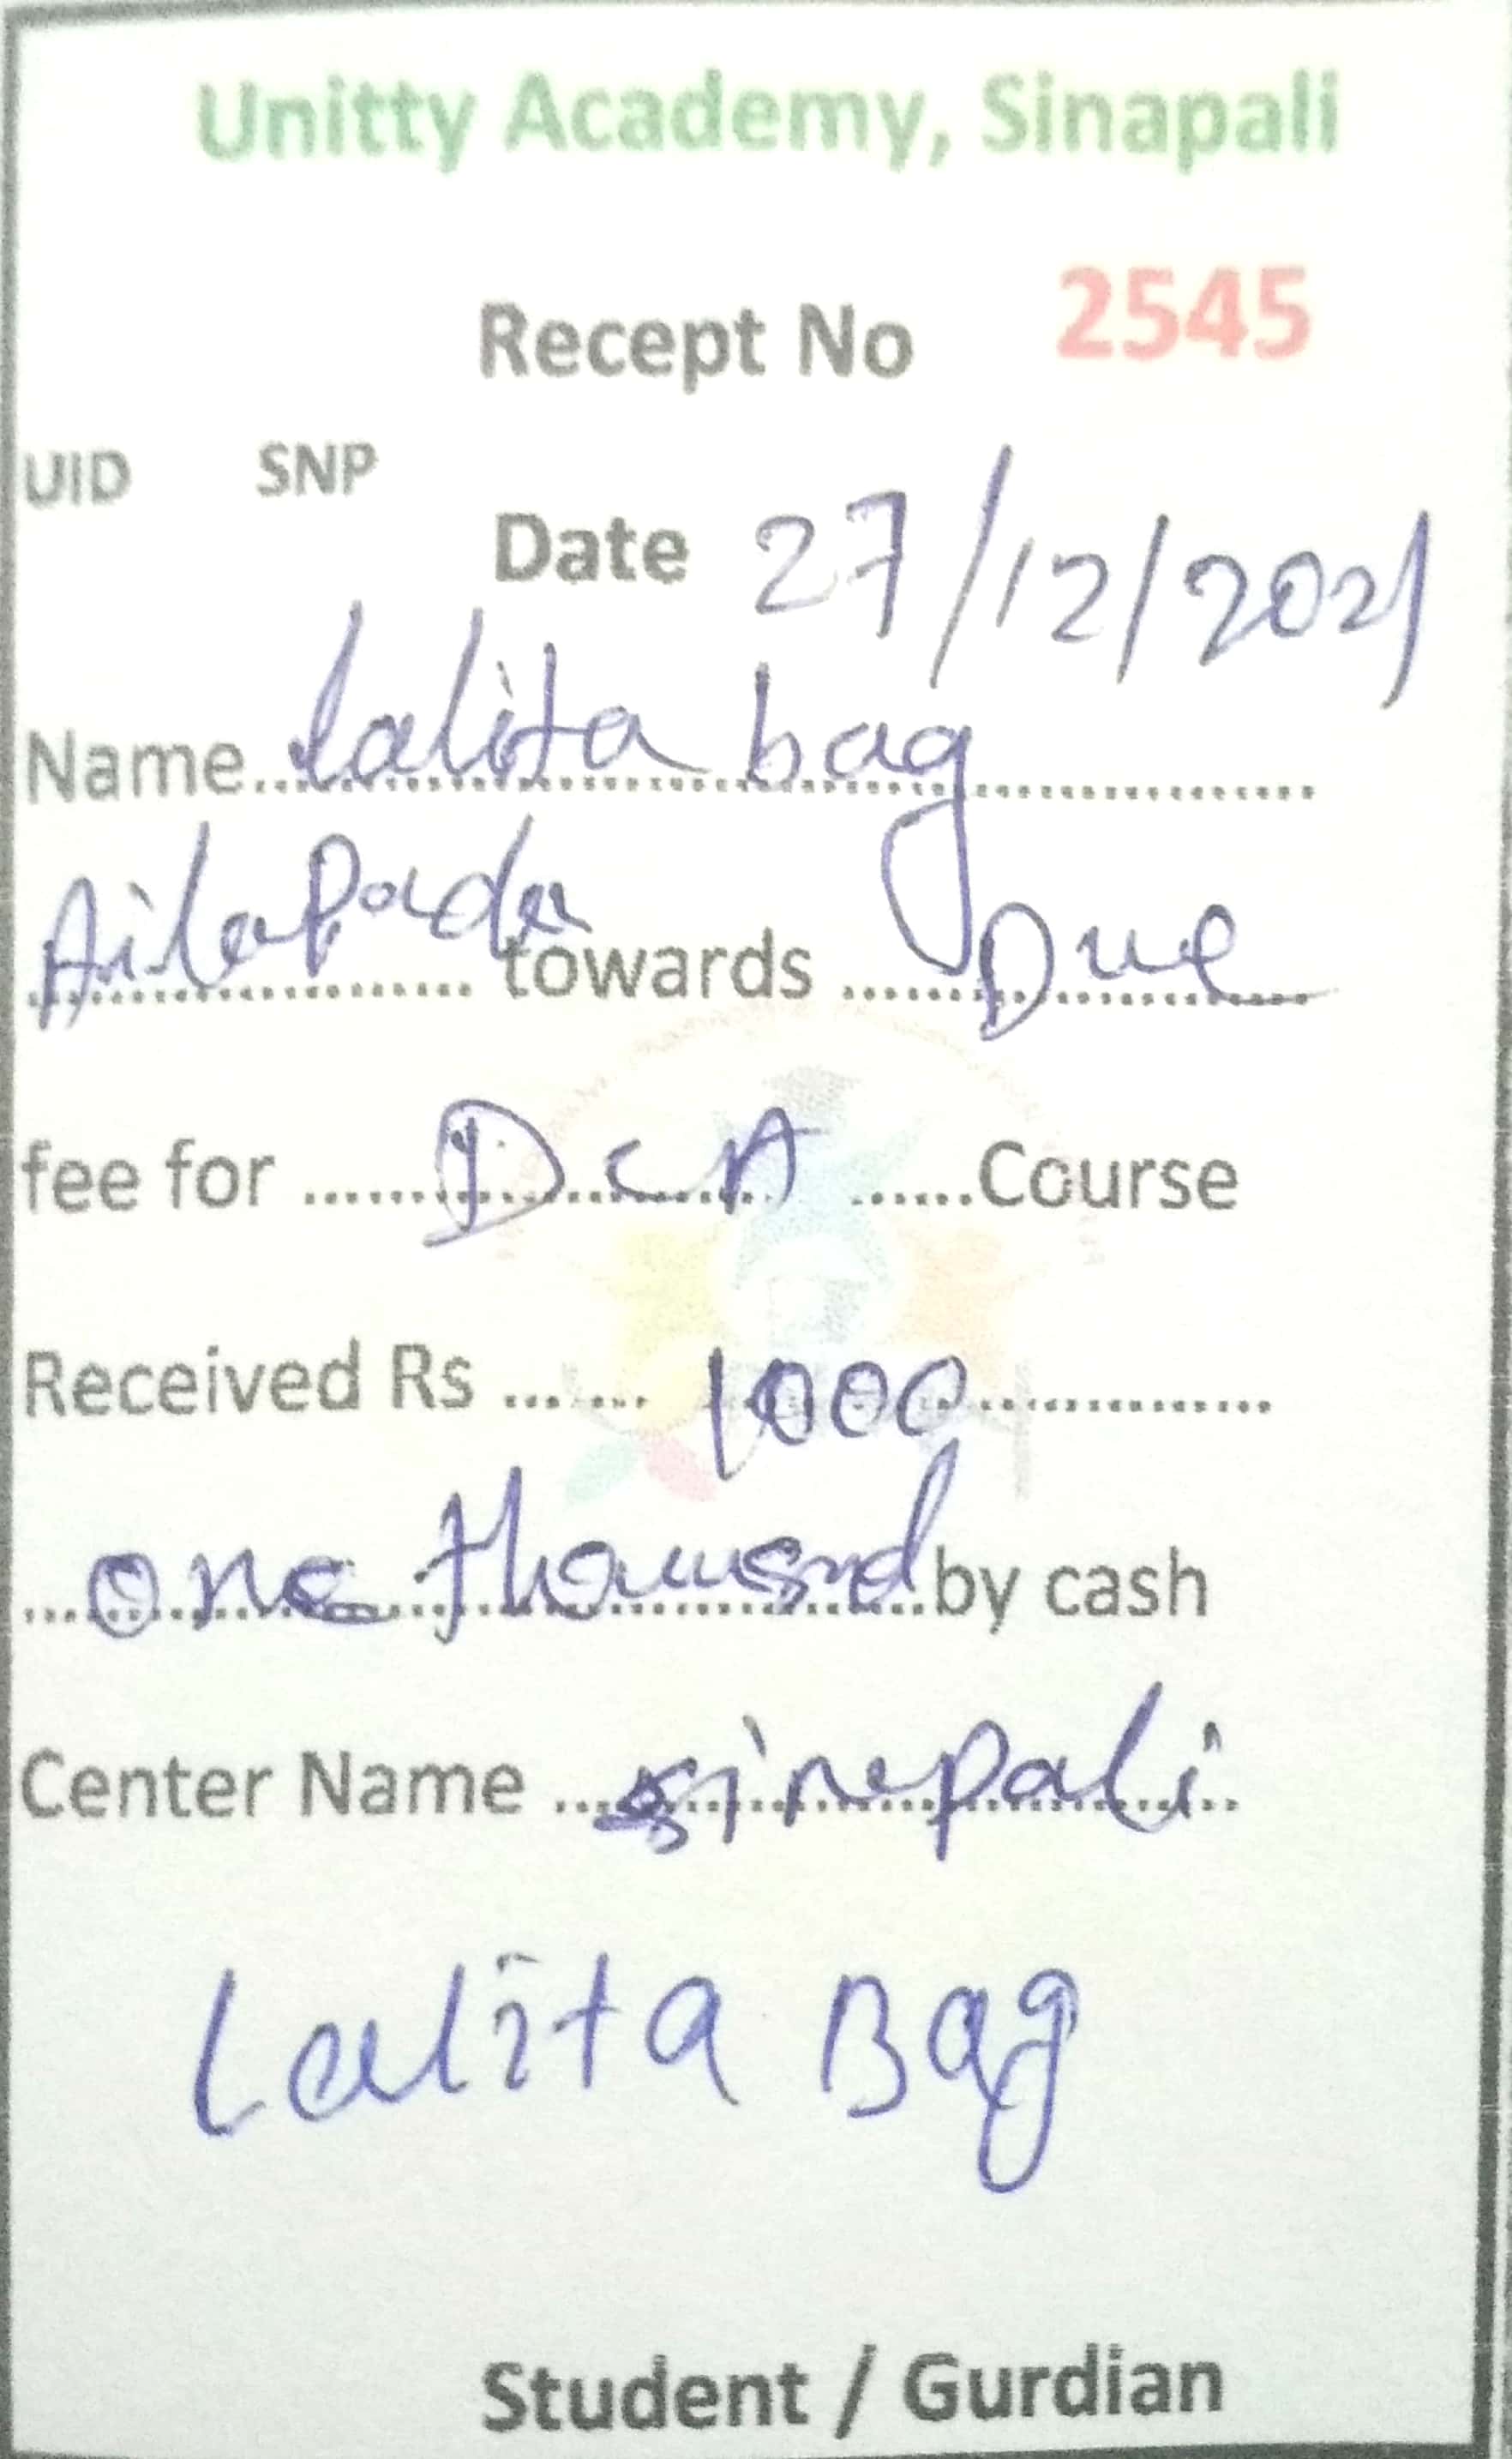 Unitty Academy, Sinapali
Recept No 2545
UID SNP
Date 27/12/2021
Name lalita bag
towards Due
fee for DCA Course
Received Rs 1000
one thousand by cash
Center Name sinepali
Lalita Bag
Student / Gurdian